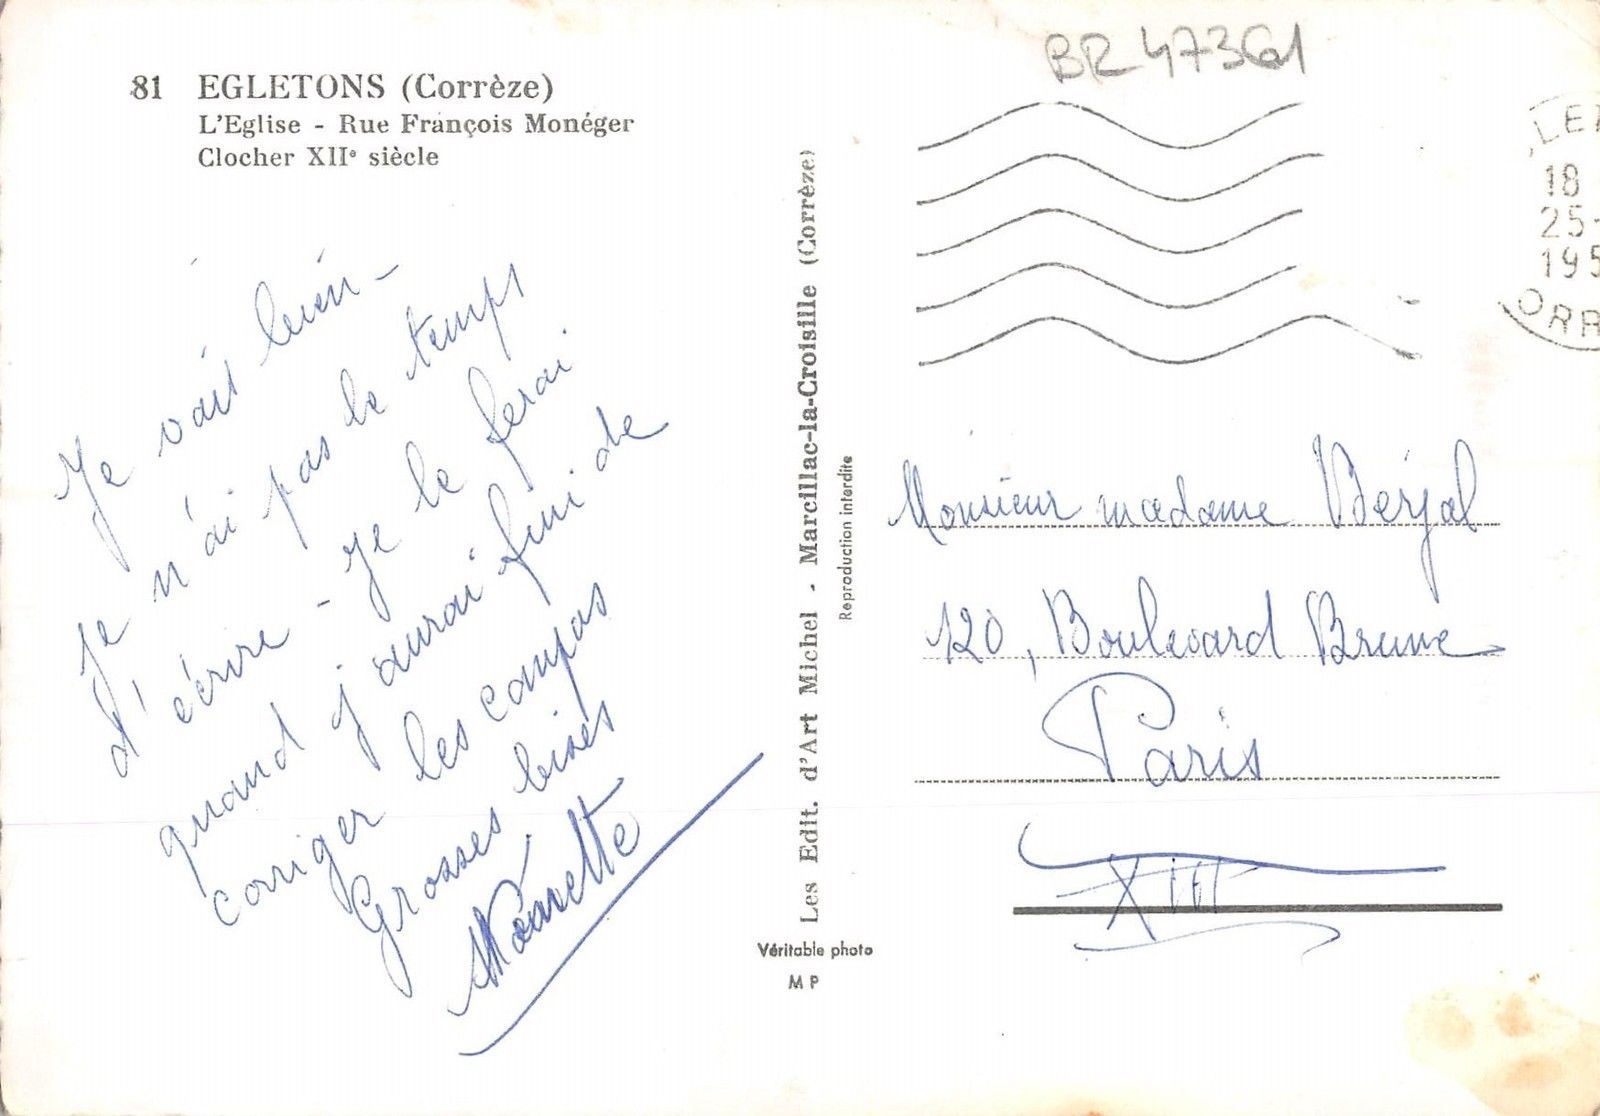 81 EGLETONS (Corrèze)
L'Eglise - Rue François Monéger
Clocher XIIe siècle
Je vais bien -
Je n'ai pas le temps
d'écrire - Je le ferai
quand j'aurai fini de
corriger les compos
Grosses bises
Les Edit. d'Art Michel - Marcillac-la-Croisille (Corrèze)
Reproduction interdite
Véritable photo
M P
BR 47361
18
25-
195
ORR
Monsieur madame Berjal
120, Boulevard Brune
Paris
XIV